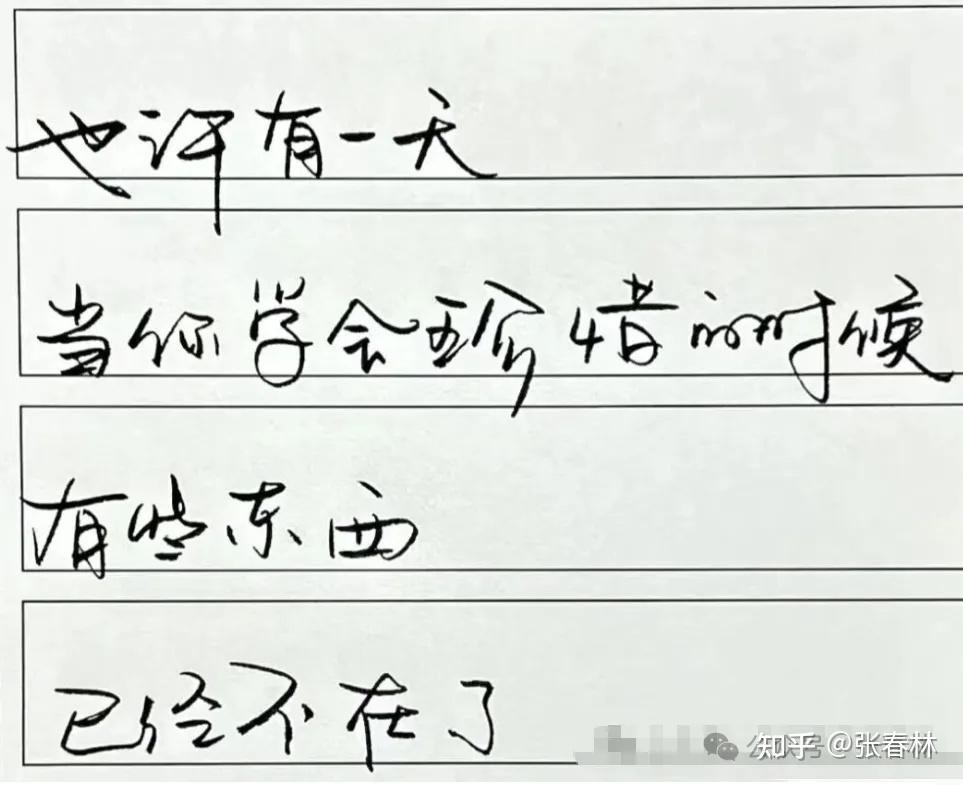 也许有一天
当你学会珍惜的时候
有些东西
已经不在了
知乎 @张春林